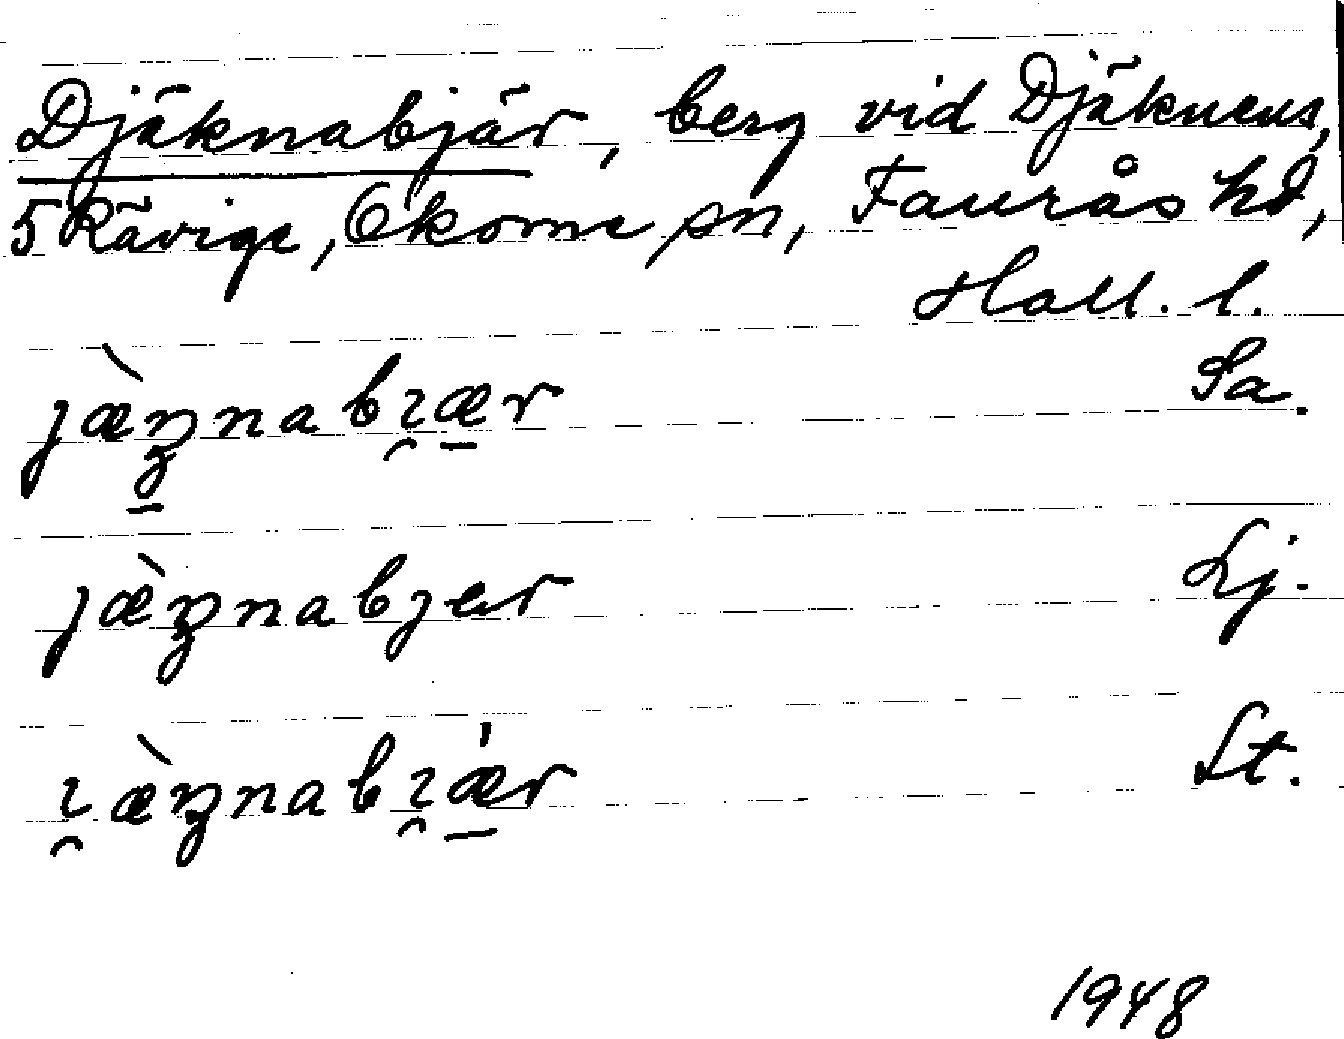 Djäknabjär, berg vid Djäknens,
5 Rävige, Okome sn, Faurås hd,
Hall. l.
jæ̀ŋnabɩ̯æ̱r Sa.
jæ̀ŋnabjer Lj.
ɩ̯æ̀ŋnabɩ̯ǽ̱r St.
1948